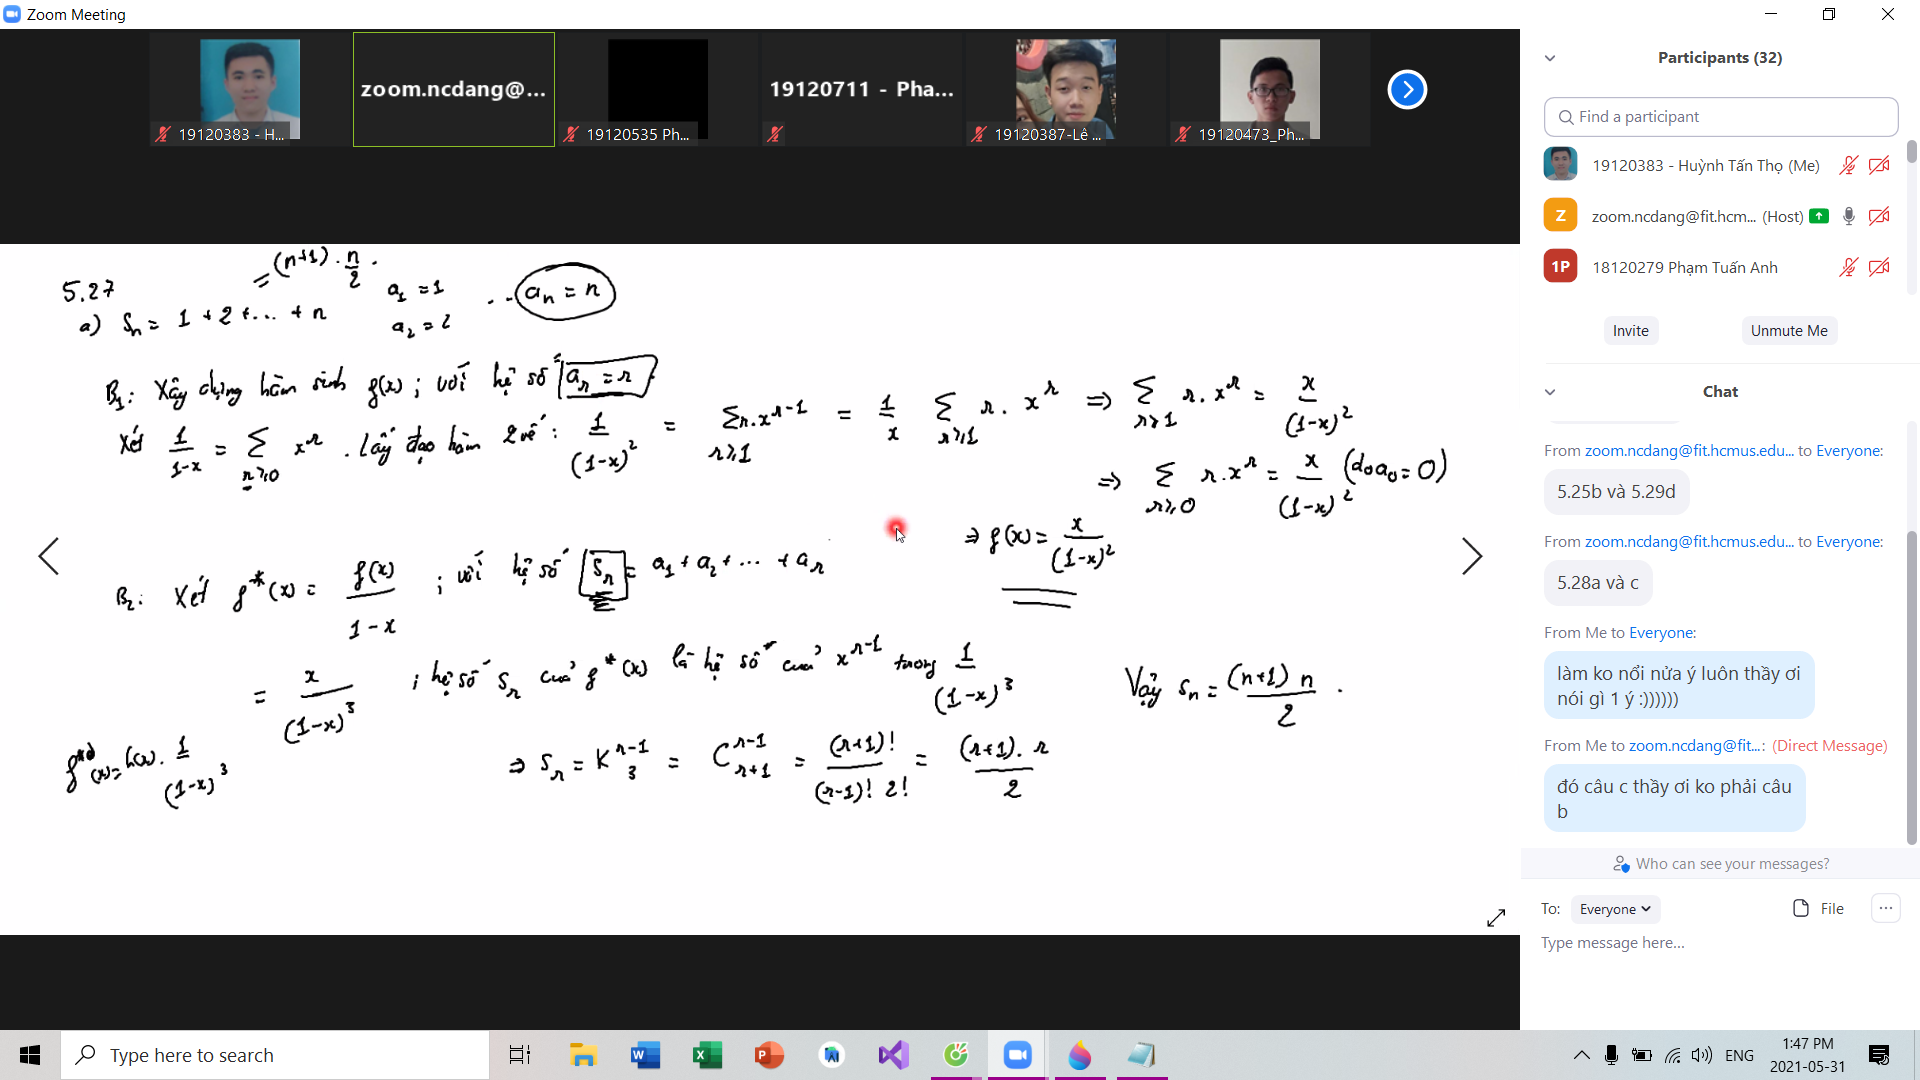 Zoom Meeting
19120383 - H...
zoom.ncdang@...
19120535 Ph...
19120711 - Pha...
19120387-Lê ...
19120473_Ph...
5.27
= (n+1) . n/2 .
a) Sn = 1 + 2 + ... + n
a1 = 1
a2 = 2
... an = n
B1: Xây dựng hàm sinh f(x) ; với hệ số ar = r
Xét 1/(1-x) = Σ r≥0 x^r . Lấy đạo hàm 2 vế : 1/(1-x)^2 = Σ r≥1 r.x^(r-1) = 1/x Σ r≥1 r . x^r => Σ r≥1 r . x^r = x/(1-x)^2
=> Σ r≥0 r.x^r = x/(1-x)^2 (do a0 = 0)
=> f(x) = x/(1-x)^2
B2: Xét f*(x) = f(x)/(1-x) ; với hệ số Sr = a1 + a2 + ... + ar
= x/(1-x)^3 ; hệ số Sr của f*(x) là hệ số của x^(r-1) trong 1/(1-x)^3
=> Sr = K 3 ^(r-1) = C r+1 ^(r-1) = (r+1)!/((r-1)! 2!) = (r+1). r/2
Vậy Sn = (n+1) n/2 .
(x) = h(x) . 1/(1-x)^3
Participants (32)
Find a participant
19120383 - Huỳnh Tấn Thọ (Me)
Z zoom.ncdang@fit.hcm... (Host)
1P 18120279 Phạm Tuấn Anh
Invite
Unmute Me
Chat
From zoom.ncdang@fit.hcmus.edu... to Everyone:
5.25b và 5.29d
From zoom.ncdang@fit.hcmus.edu... to Everyone:
5.28a và c
From Me to Everyone:
làm ko nổi nửa ý luôn thầy ơi
nói gì 1 ý :))))))
From Me to zoom.ncdang@fit...: (Direct Message)
đó câu c thầy ơi ko phải câu
b
Who can see your messages?
To: Everyone
File
...
Type message here...
Type here to search
ENG
1:47 PM
2021-05-31